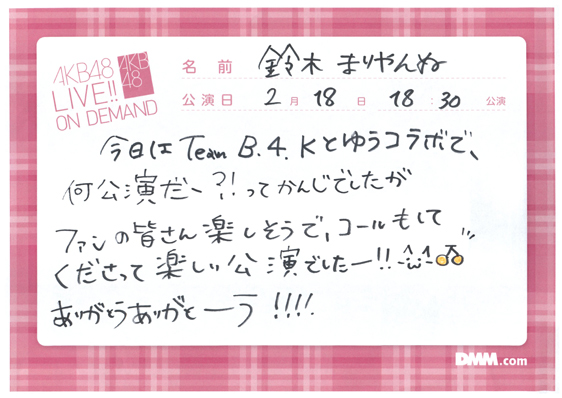 AKB48
LIVE!!
ON DEMAND
AKB
48
名前 鈴木まりやんぬ
公演日 2月18日 18:30公演
今日は Team B.4.Kとゆうコラボで、
何公演だー?!ってかんじでしたが
ファンの皆さん楽しそうで、コールもして
くださって楽しい公演でしたー!!
ありがとうありがとーう!!!!
DMM.com